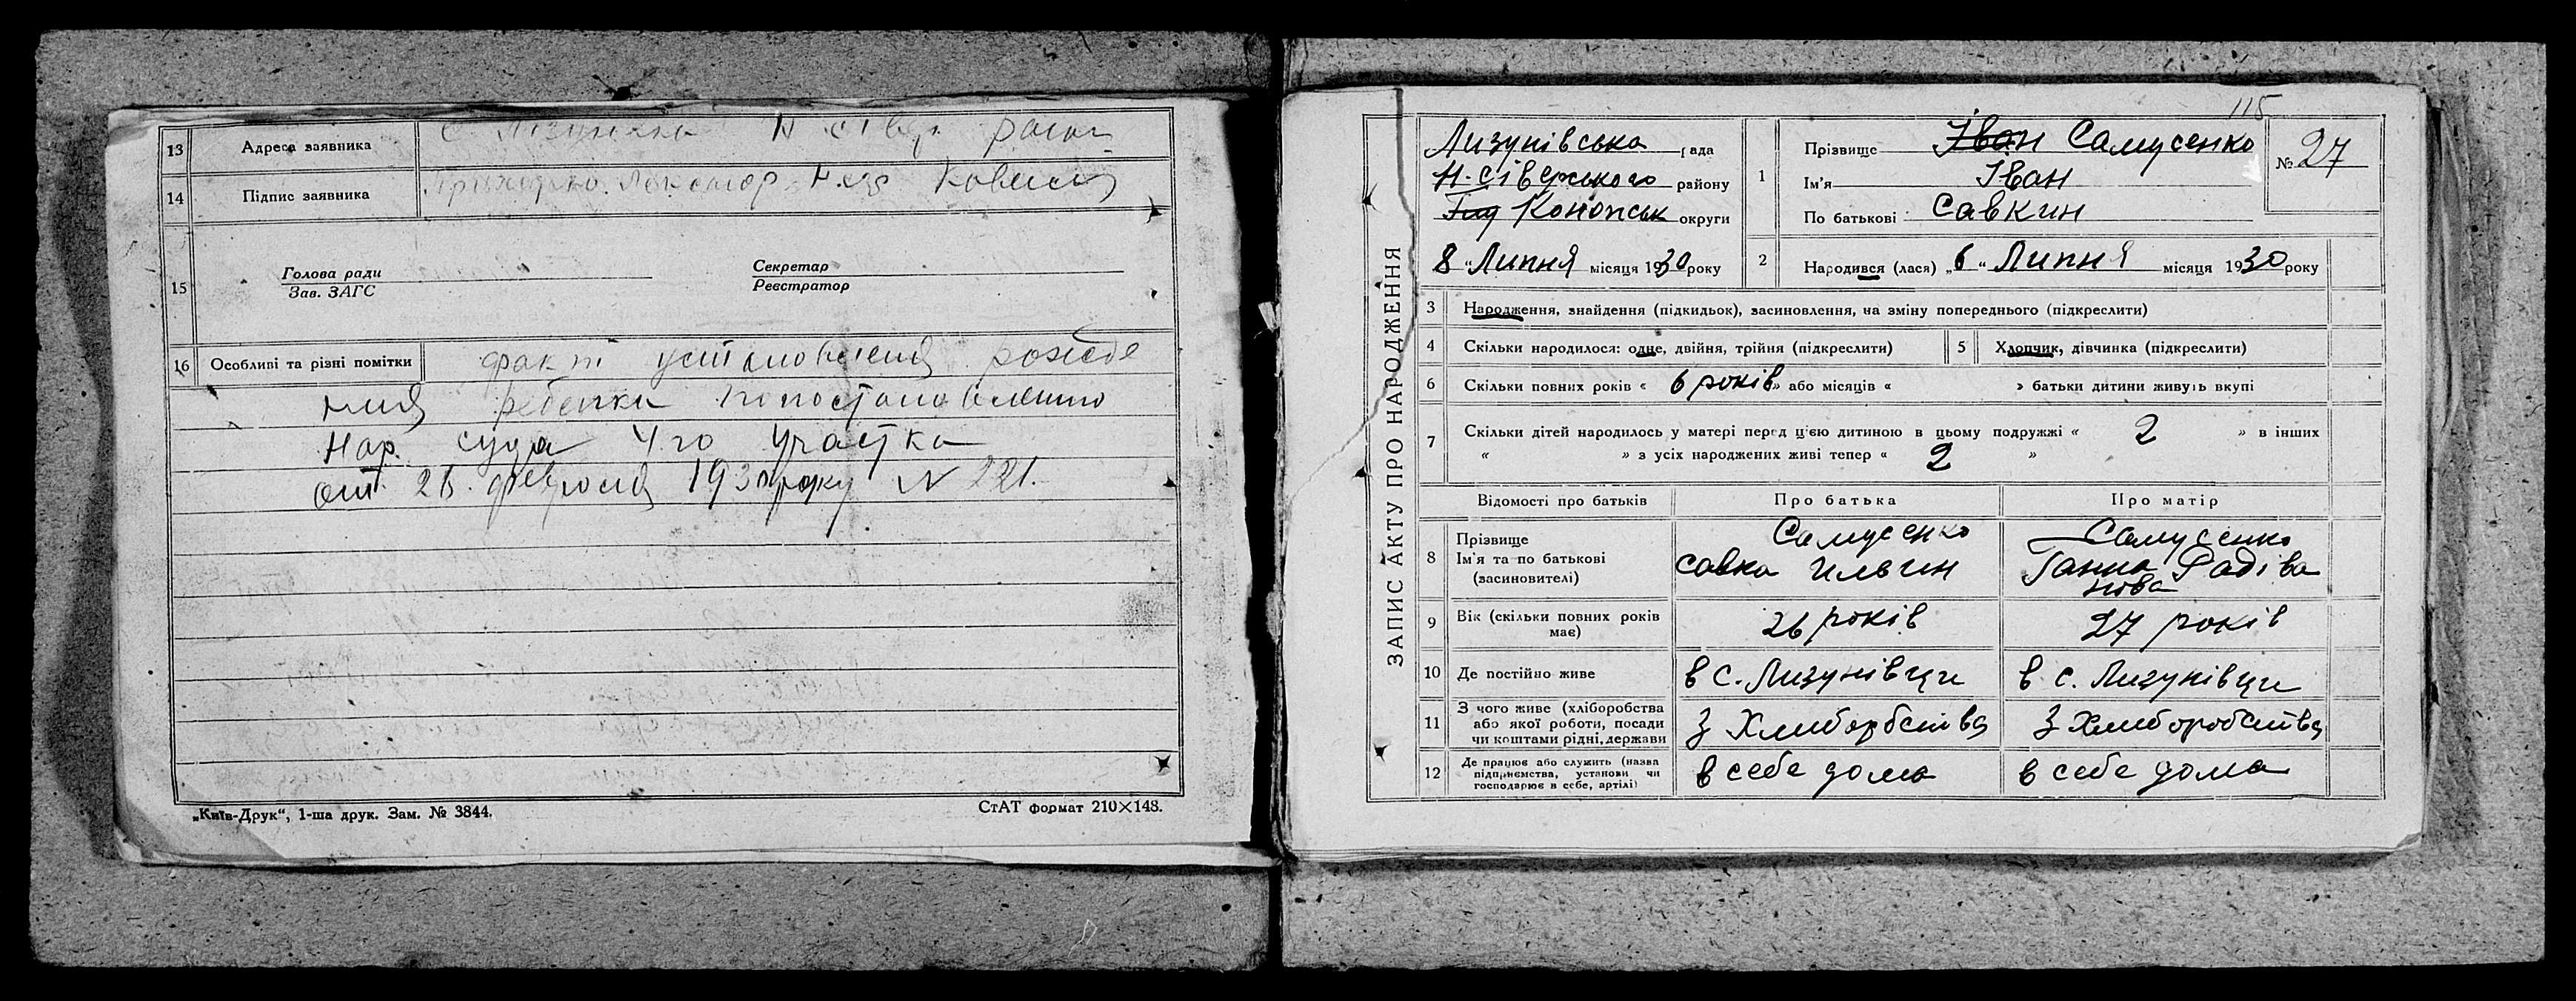 13 Адреса заявника с. Лізунівки Н сівер. район
14 Підпис заявника
15 Голова ради
Зав. ЗАГС
Секретар
Реєстратор
16 Особливі та різні помітки факт установления рожде
ния ребенка по постановлению
Нар. суда 4го участка
от февраля року N 221.
„Київ-Друк“, 1-ша друк. Зам. № 3844.
СтАТ формат 210×148.
115
ЗАПИС АКТУ ПРО НАРОДЖЕННЯ
Лизунівська рада
Н-сіверського району
Конотопськ округи
8 „ Липня місяця 1930 року
1 Прізвище Іван Самусенко
Ім'я Іван
По батькові Савкин
№ 27
2 Народився (лася) „6“ Липня місяця 1930 року
3 Народження, знайдення (підкидьок), засиновлення, на зміну попереднього (підкреслити)
4 Скільки народилося: одне, двійня, трійня (підкреслити)
5 Хлопчик, дівчинка (підкреслити)
6 Скільки повних років « 6 років » або місяців « » батьки дитини живуть вкупі
7 Скільки дітей народилось у матері перед цією дитиною в цьому подружжі « 2 » в інших
« » з усіх народжених живі тепер « 2 »
Відомості про батьків Про батька Про матір
8 Прізвище
Ім'я та по батькові
(засиновителі)
Самусенко
Савка Ильин
Самусенко
Ганна Радіва
нова
9 Вік (скільки повних років
має)
26 років
27 років
10 Де постійно живе в с. Лизунівци в с. Лизунівци
11 З чого живе (хліборобства
або якої роботи, посади
чи коштами рідні, держави
З Хлиборбства
З Хлиборобства
12 Де працює або служить (назва
підприємства, установи чи
господарює в себе, артілі)
в себе дома
в себе дома